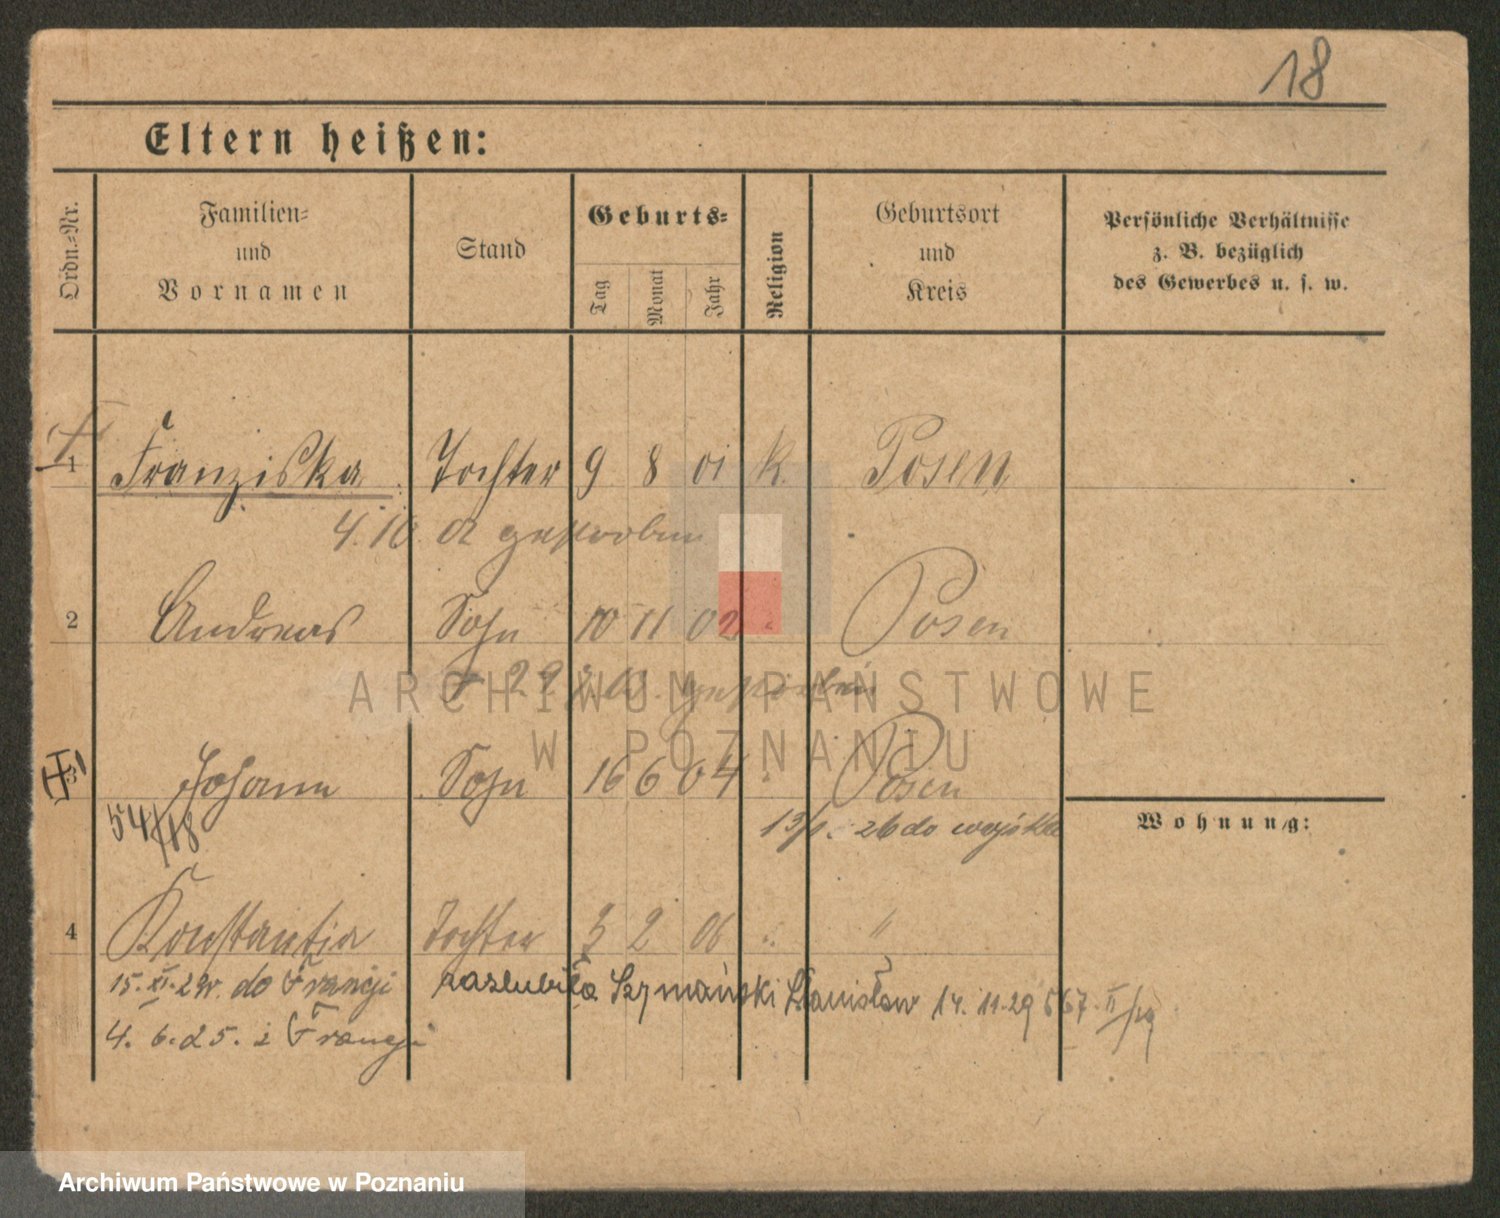 18
Eltern heißen:
Ordn.-Nr.
Familien- und Vornamen
Stand
Geburts-
Tag
Monat
Jahr
Religion
Geburtsort und Kreis
Persönliche Verhältnisse z. B. bezüglich des Gewerbes u. s. w.
1 Franziska Tochter 9 8 01 k. Posen
4.10. 02 gestorben
2 Andreas Sohn 10 11 02 " Posen
gestorben
3 Johann Sohn 16 6 04 " Posen
54/18
26 do wojska
Wohnung:
4 Konstantia Tochter 3 2 06 " "
15. XI. 29r. do Francji zaślubiła Szymański Stanisław 14. 11. 29 567. II/29
4. 6. 25. z Francji
ARCHIWUM PAŃSTWOWE
W POZNANIU
Archiwum Państwowe w Poznaniu